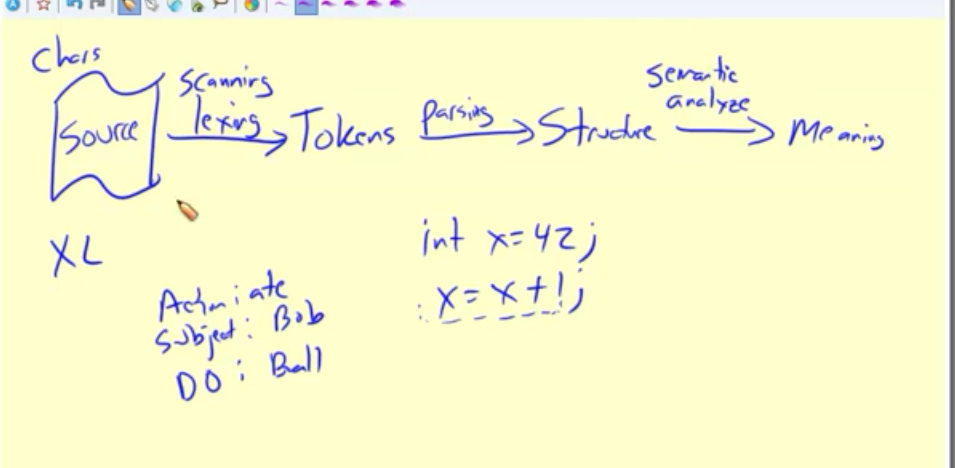 Chars
Source
scanning
lexing
Tokens
parsing
Structure
semantic
analyze
Meaning
XL
int x=42;
x=x+1;
Action: ate
Subject: Bob
DO: Ball